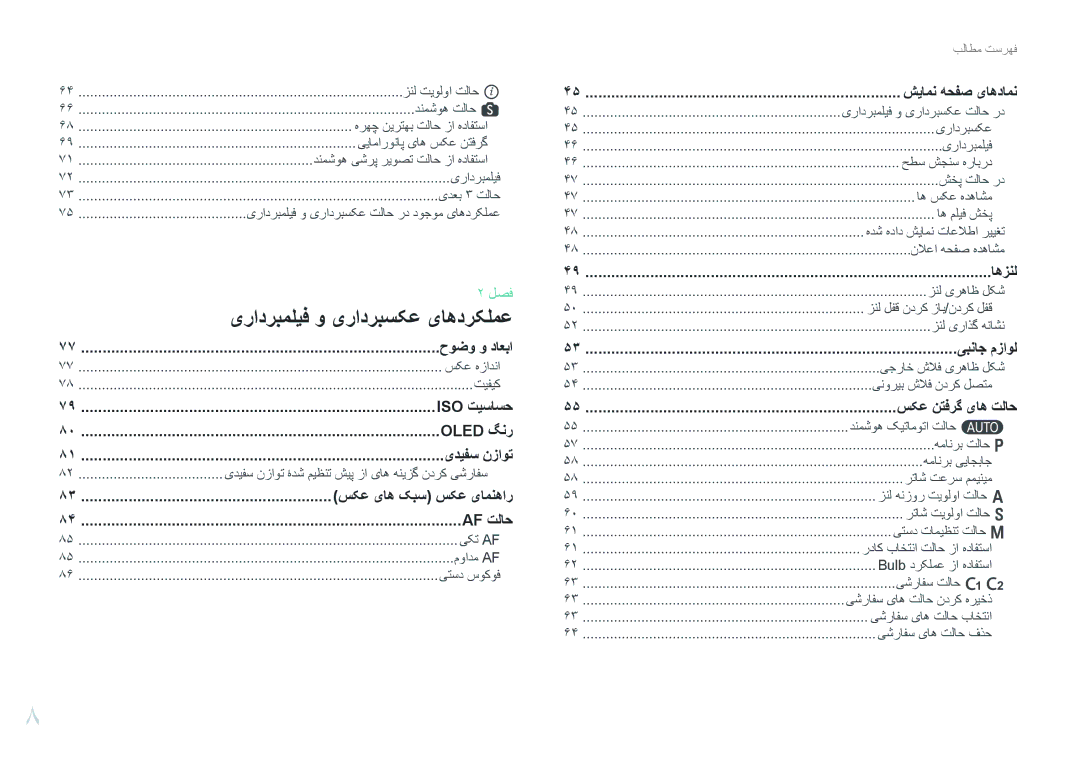 فهرست مطالب
نمادهای صفحه نمایش ۴۵
در حالت عکسبرداری و فیلمبرداری ۴۵
عکسبرداری ۴۵
فیلمبرداری ۴۶
درباره سنجش سطح ۴۶
در حالت پخش ۴۷
مشاهده عکس ها ۴۷
پخش فیلم ها ۴۷
تغییر اطلاعات نمایش داده شده ۴۸
مشاهده صفحه اعلان ۴۸
لنزها ۴۹
شکل ظاهری لنز ۴۹
قفل کردن/باز کردن قفل لنز ۵۰
نشانه گذاری لنز ۵۲
لوازم جانبی ۵۳
شکل ظاهری فلاش خارجی ۵۳
متصل کردن فلاش بیرونی ۵۴
حالت های گرفتن عکس ۵۵
AUTO حالت اتوماتیک هوشمند ۵۵
P حالت برنامه ۵۷
جابجایی برنامه ۵۸
مینیمم سرعت شاتر ۵۸
A حالت اولویت روزنه لنز ۵۹
S حالت اولویت شاتر ۶۰
M حالت تنظیمات دستی ۶۱
استفاده از حالت انتخاب کادر ۶۱
استفاده از عملکرد Bulb ۶۲
C1 C2 حالت سفارشی ۶۳
ذخیره کردن حالت های سفارشی ۶۳
انتخاب حالت های سفارشی ۶۳
حذف حالت های سفارشی ۶۴
i حالت اولویت لنز ۶۴
S حالت هوشمند ۶۶
استفاده از حالت بهترین چهره ۶۸
گرفتن عکس های پانورامایی ۶۹
استفاده از حالت تصویر پرشی هوشمند ۷۱
فیلمبرداری ۷۲
حالت ۳ بعدی ۷۳
عملکردهای موجود در حالت عکسبرداری و فیلمبرداری ۷۵
فصل ۲
عملکردهای عکسبرداری و فیلمبرداری
ابعاد و وضوح ۷۷
اندازه عکس ۷۷
کیفیت ۷۸
حساسیت ISO ۷۹
رنگ OLED ۸۰
توازن سفیدی ۸۱
سفارشی کردن گزینه های از پیش تنظیم شدۀ توازن سفیدی ۸۲
راهنمای عکس (سبک های عکس) ۸۳
حالت AF ۸۴
AF تکی ۸۵
AF مداوم ۸۵
فوکوس دستی ۸۶
۸